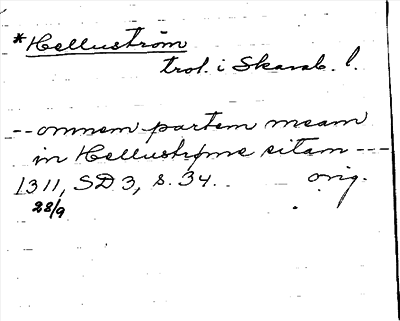 *Hellustrøm
trol. i Skarab. l.
-- omnem partem meam
in Hellustrøme sitam ---
1311, SD 3, s. 34. orig.
28/9